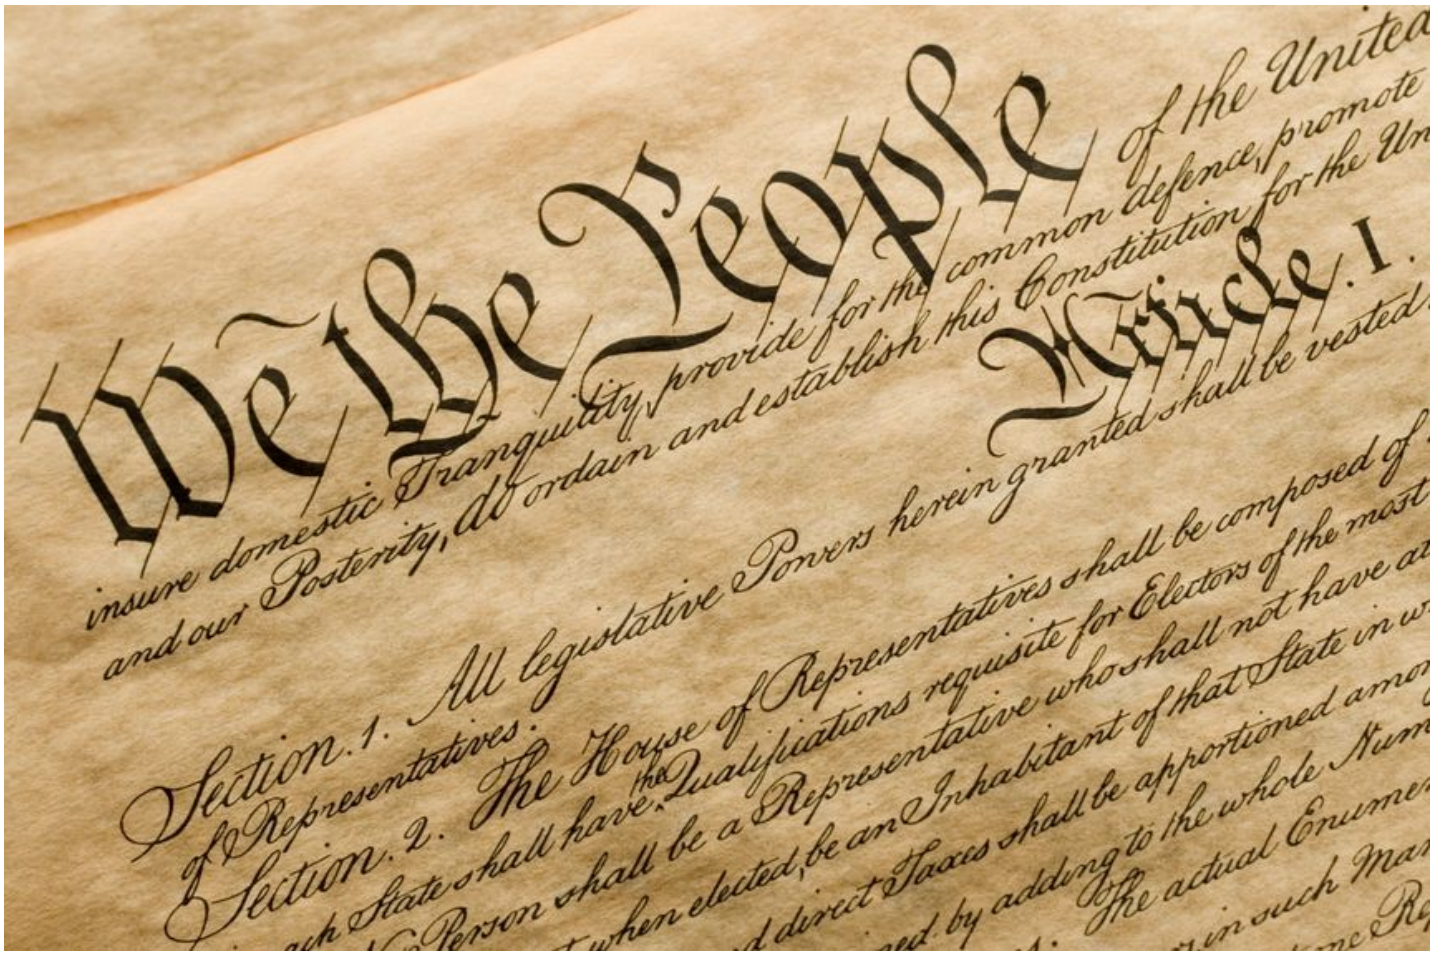 We the People of the United
insure domestic Tranquility, provide for the common defence, promote
and our Posterity, do ordain and establish this Constitution for the Un
Article. I.
Section. 1. All legislative Powers herein granted shall be vested
of Representatives.
Section. 2. The House of Representatives shall be composed of
ach State shall have the Qualifications requisite for Electors of the most
Person shall be a Representative who shall not have at
when elected, be an Inhabitant of that State in w
d direct Taxes shall be apportioned amon
ned by adding to the whole Num
The actual Enumer
in such Man
one Re